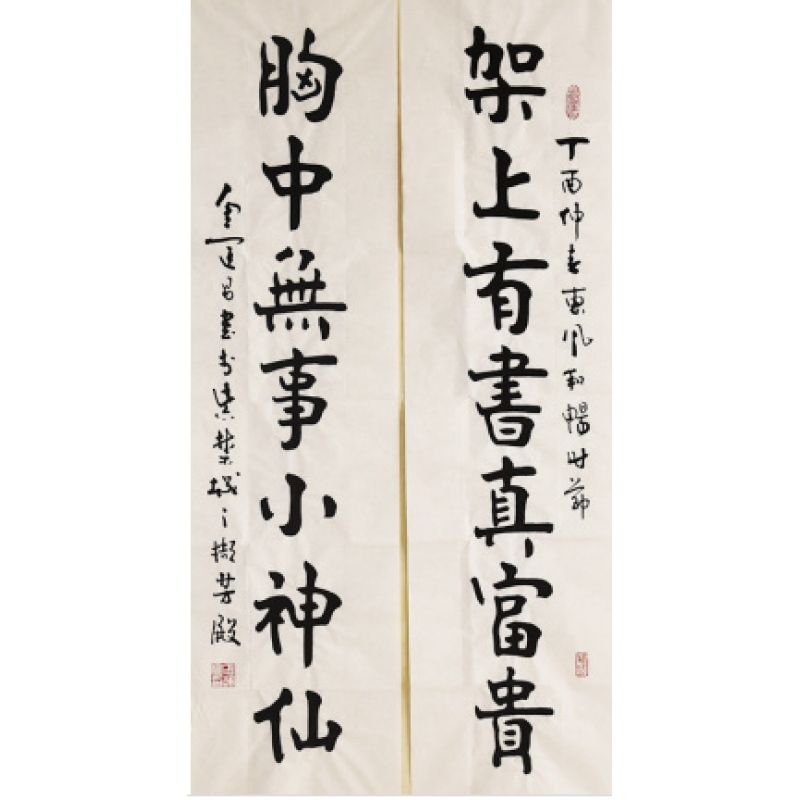 丁酉仲春東風和暢时節
架上有書真富貴
胸中無事小神仙
金運昌書於紫禁城之擷芳殿